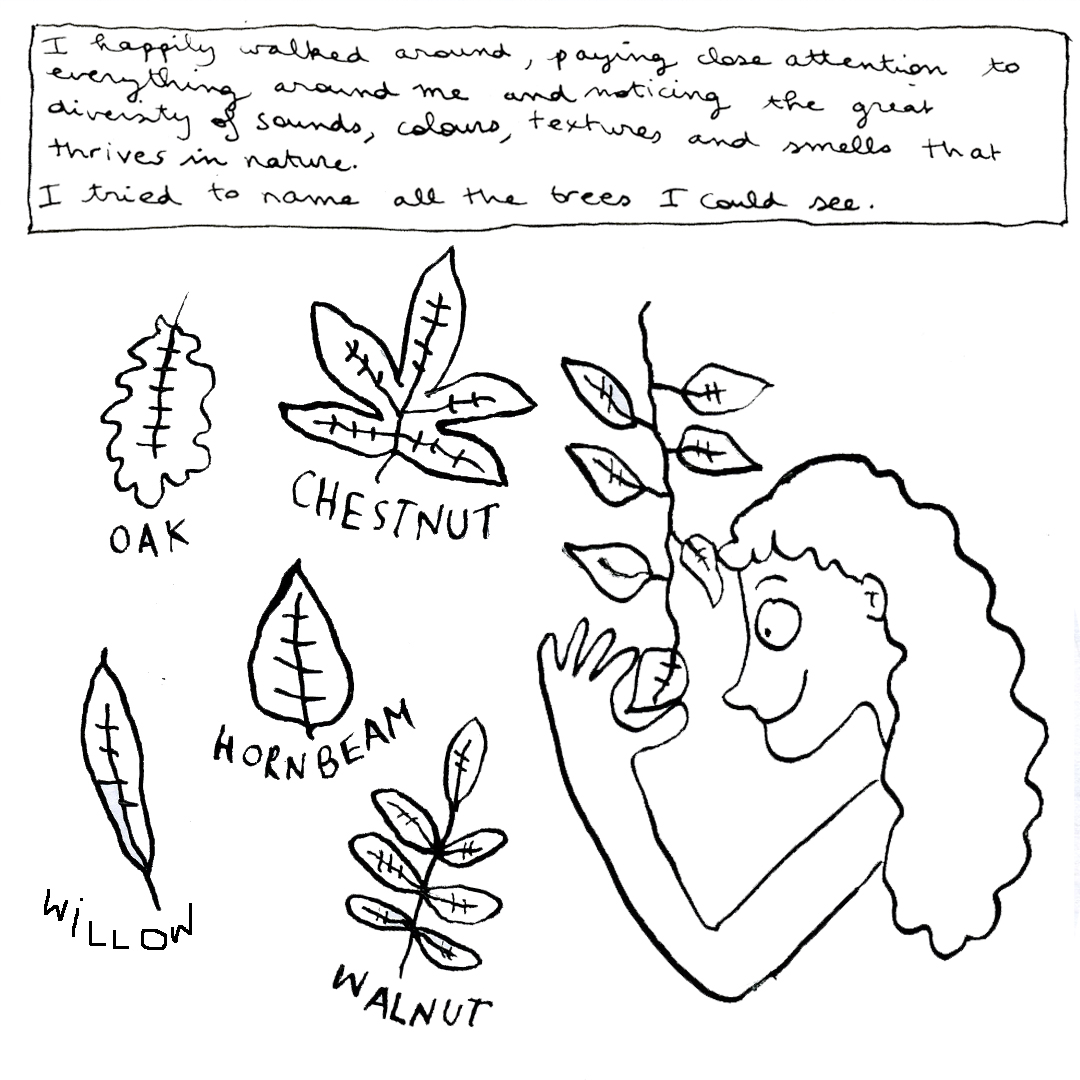 I happily walked around, paying close attention to
everything around me and noticing the great
diversity of sounds, colours, textures and smells that
thrives in nature.
I tried to name all the trees I could see.
OAK
CHESTNUT
HORNBEAM
WiLLOW
WALNUT